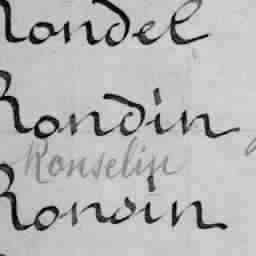 Rondel
Rondin
Ronselin
Ronsin